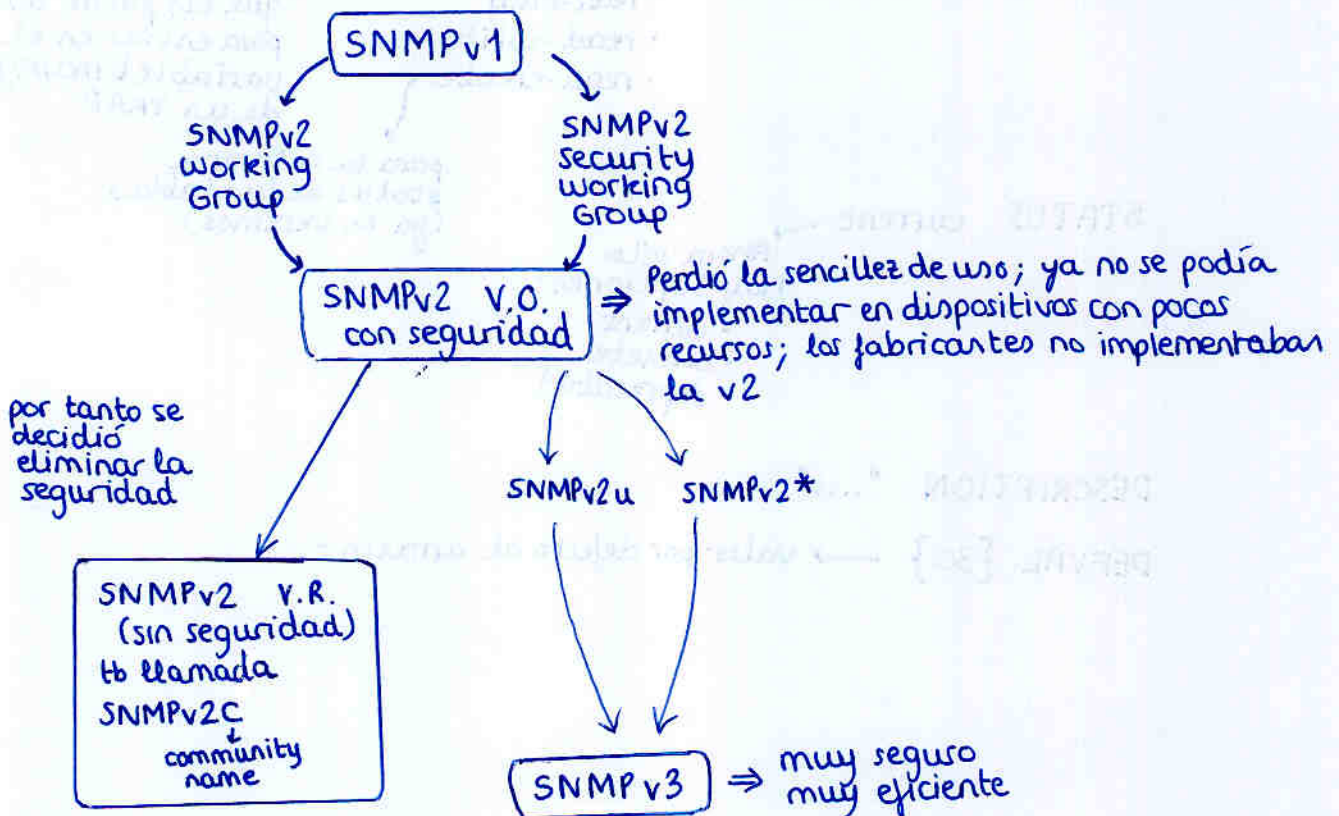 SNMPv1
SNMPv2
working
Group
SNMPv2
security
working
Group
SNMPv2 V.O.
con seguridad
⇒ Perdió la sencillez de uso; ya no se podía
implementar en dispositivos con pocos
recursos; los fabricantes no implementaban
la v2
por tanto se
decidió
eliminar la
seguridad
SNMPv2u
SNMPv2*
SNMPv2 V.R.
(sin seguridad)
tb llamada
SNMPv2C
community
name
SNMPv3
⇒ muy seguro
muy eficiente